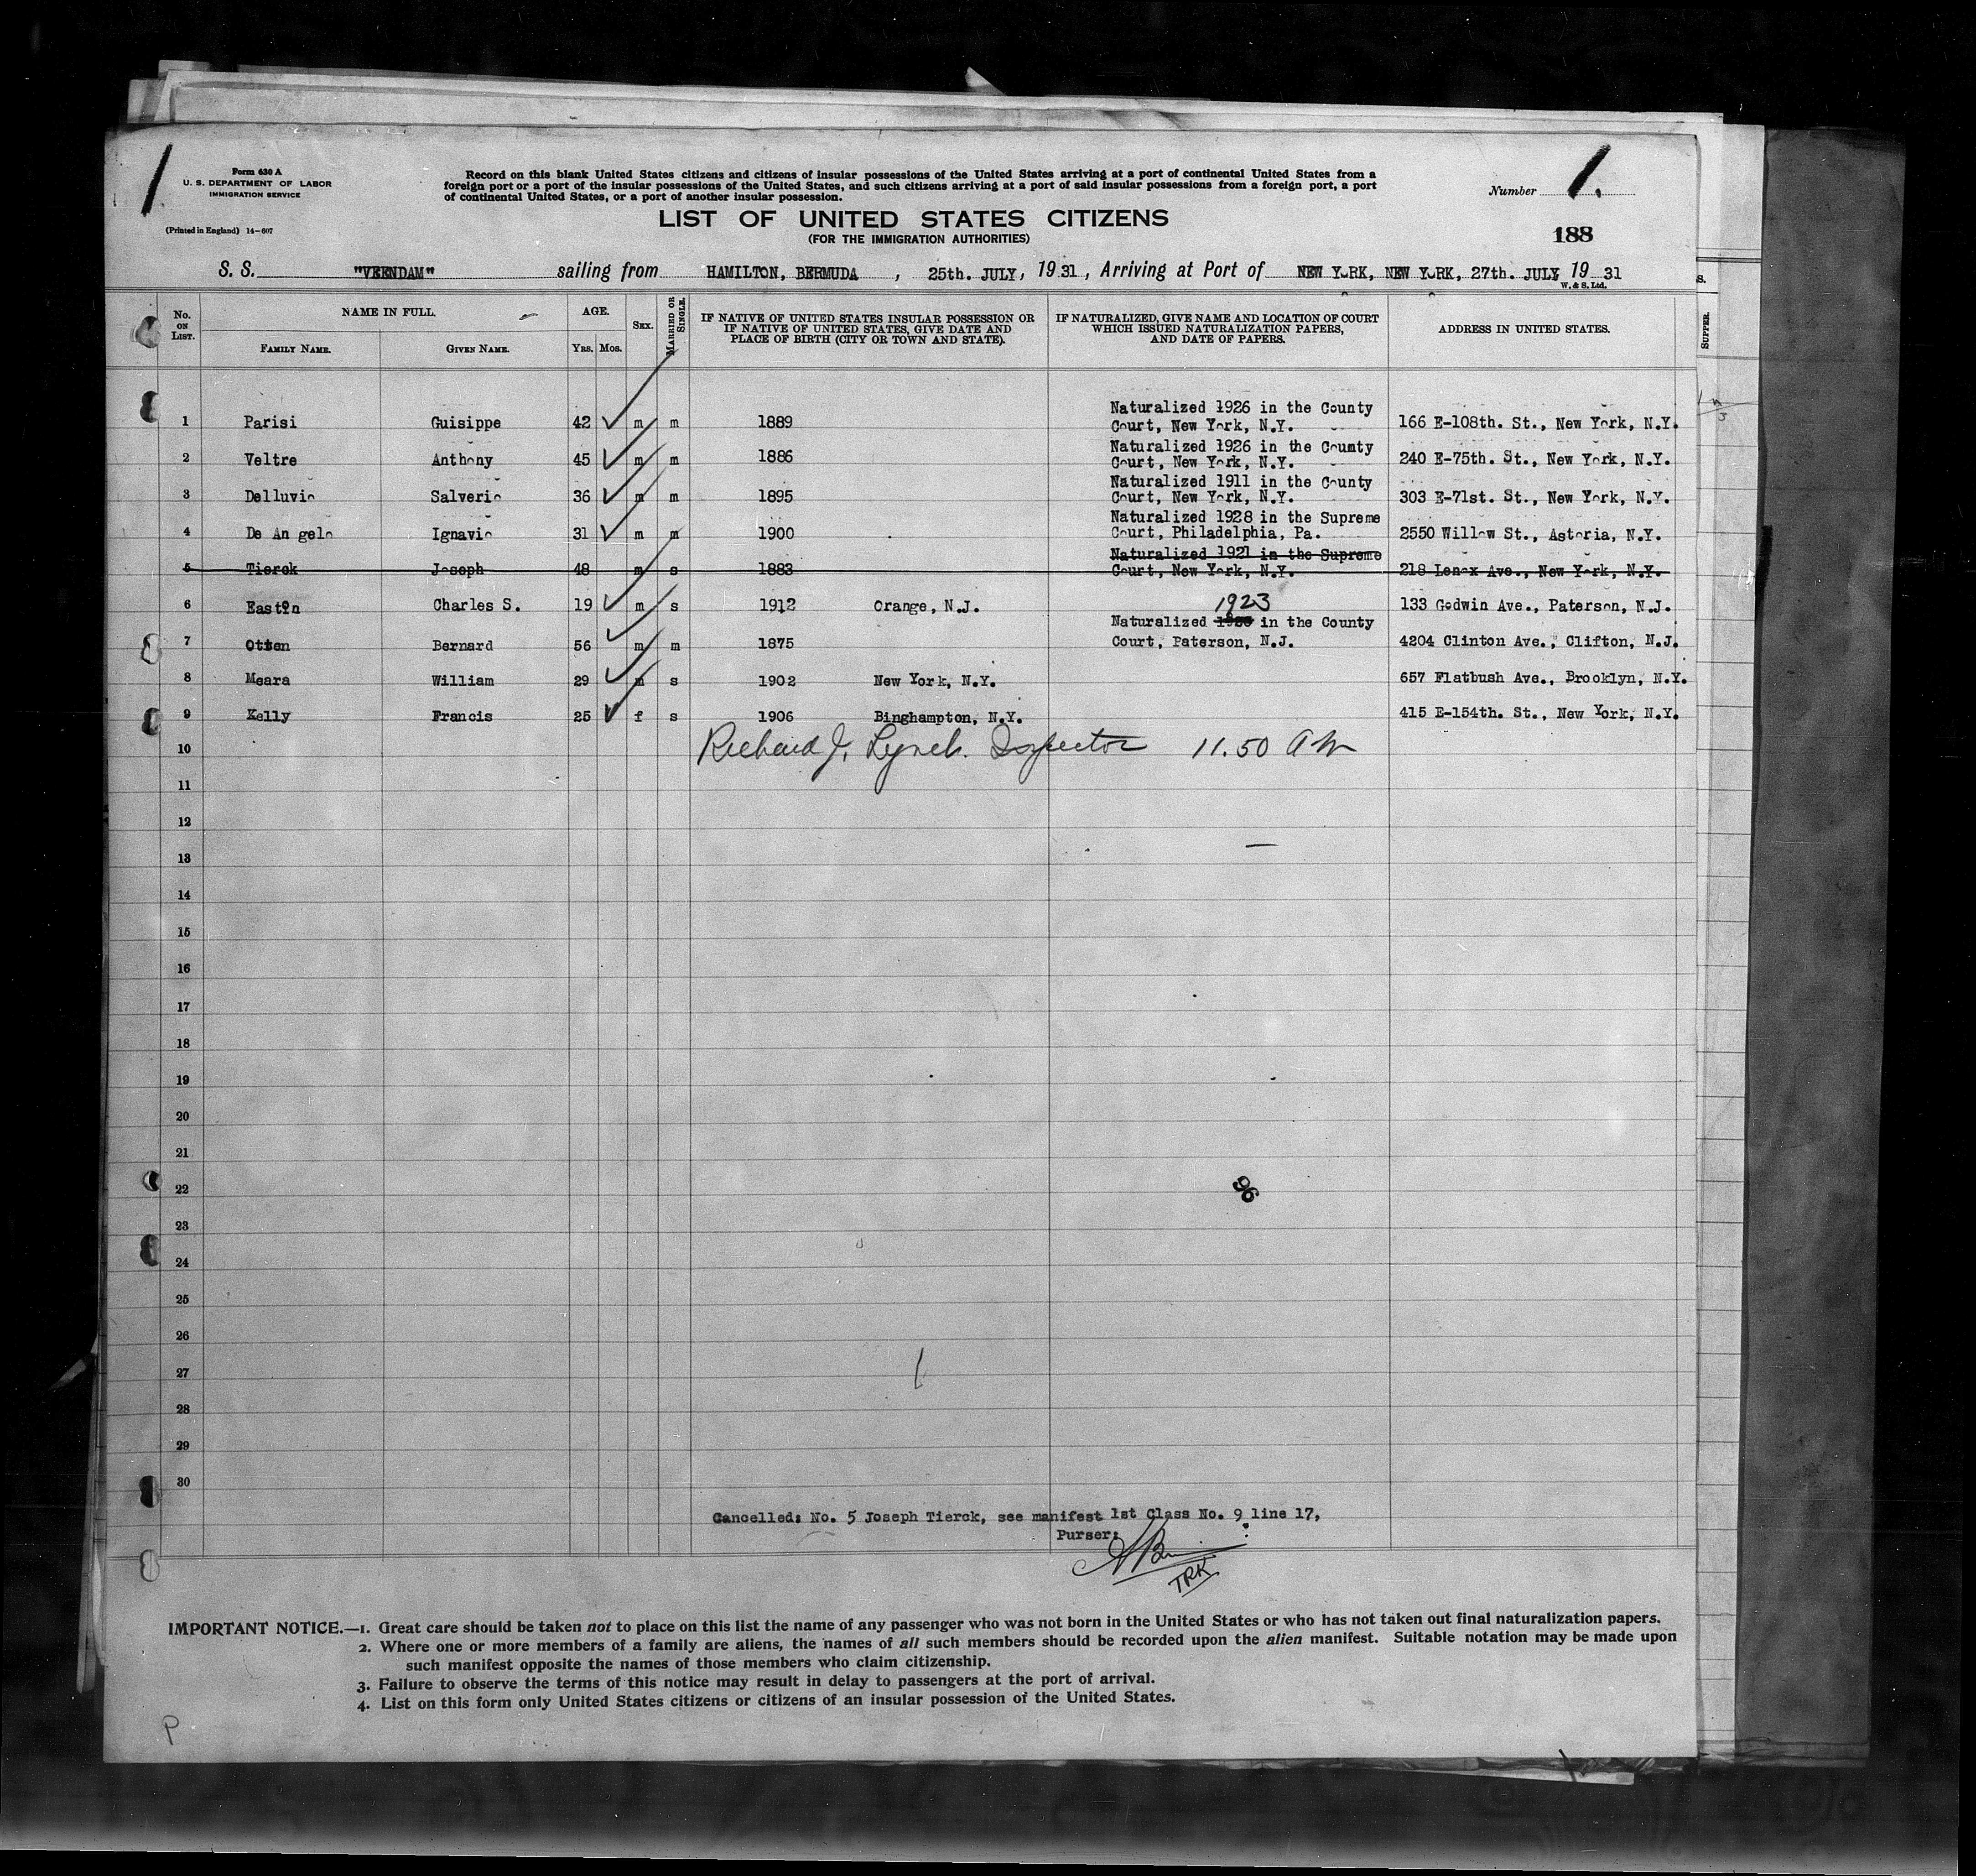 1
1.
Form 630 A
U. S. DEPARTMENT OF LABOR
IMMIGRATION SERVICE
(Printed in England) 14-607
Record on this blank United States citizens and citizens of insular possessions of the United States arriving at a port of continental United States from a
foreign port or a port of the insular possessions of the United States, and such citizens arriving at a port of said insular possessions from a foreign port, a port
of continental United States, or a port of another insular possession.
Number
LIST OF UNITED STATES CITIZENS
(FOR THE IMMIGRATION AUTHORITIES)
188
S. S. "VEENDAM" sailing from HAMILTON, BERMUDA , 25th. JULY, 1931, Arriving at Port of NEW YORK, NEW YORK, 27th. JULY 1931
W. & S. Ltd.
No. ON LIST. NAME IN FULL. AGE. SEX. MARRIED OR SINGLE. IF NATIVE OF UNITED STATES INSULAR POSSESSION OR IF NATIVE OF UNITED STATES, GIVE DATE AND PLACE OF BIRTH (CITY OR TOWN AND STATE). IF NATURALIZED, GIVE NAME AND LOCATION OF COURT WHICH ISSUED NATURALIZATION PAPERS, AND DATE OF PAPERS. ADDRESS IN UNITED STATES.
FAMILY NAME. GIVEN NAME. YRS. MOS.
S.
SUPPER.
Naturalized 1926 in the County
1 Parisi Guisippe 42 m m 1889 Court, New York, N.Y. 166 E-108th. St., New York, N.Y.
Naturalized 1926 in the County
2 Veltre Anthony 45 m m 1886 Court, New York, N.Y. 240 E-75th. St., New York, N.Y.
Naturalized 1911 in the County
3 Delluvio Salverio 36 m m 1895 Court, New York, N.Y. 303 E-71st. St., New York, N.Y.
Naturalized 1928 in the Supreme
4 De Angelo Ignavio 31 m m 1900 Court, Philadelphia, Pa. 2550 Willow St., Astoria, N.Y.
Naturalized 1921 in the Supreme
5 Tierck Joseph 48 m s 1883 Court, New York, N.Y. 218 Lenox Ave., New York, N.Y.
6 Eastin Charles S. 19 m s 1912 Orange, N.J. 133 Godwin Ave., Paterson, N.J.
1923
Naturalized in the County
7 Otten Bernard 56 m m 1875 Court, Paterson, N.J. 4204 Clinton Ave., Clifton, N.J.
8 Meara William 29 m s 1902 New York, N.Y. 657 Flatbush Ave., Brooklyn, N.Y.
9 Kelly Francis 25 f s 1906 Binghampton, N.Y. 415 E-154th. St., New York, N.Y.
10 Richard J. Lynch. Inspector 11.50 AM
11
12
13
14
15
16
17
18
19
20
21
22
96
23
24
25
26
27
28
29
30
Cancelled: No. 5 Joseph Tierck, see manifest 1st Class No. 9 line 17,
Purser:
TRK
IMPORTANT NOTICE.—1. Great care should be taken not to place on this list the name of any passenger who was not born in the United States or who has not taken out final naturalization papers.
2. Where one or more members of a family are aliens, the names of all such members should be recorded upon the alien manifest. Suitable notation may be made upon
such manifest opposite the names of those members who claim citizenship.
3. Failure to observe the terms of this notice may result in delay to passengers at the port of arrival.
4. List on this form only United States citizens or citizens of an insular possession of the United States.
P